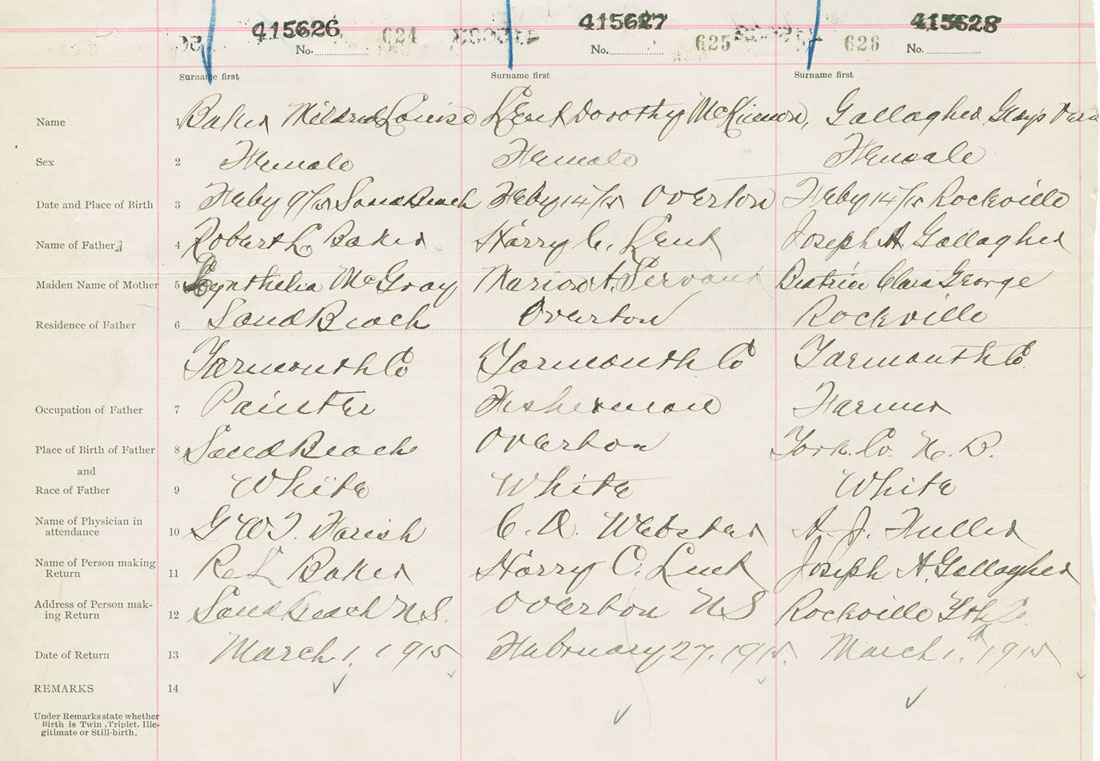 415626 415627 415628
No. 624 No. 625 626 No.
Surname first Surname first Surname first
Name 1 Baker Mildred Louise Lent Dorothy McKinnon, Gallagher Gladys
Sex 2 Female Female Female
Date and Place of Birth 3 Feby 9/15 Sand Beach Feby 14/15 Overton Feby 14/15 Rockville
Name of Father 4 Robert L Baker Harry C. Lent Joseph A Gallagher
Maiden Name of Mother 5 McGray Marion A. Servant Beatrice Clara George
Residence of Father 6 Sand Beach Overton Rockville
Yarmouth Co Yarmouth Co Yarmouth Co
Occupation of Father 7 Painter Fisherman Farmer
Place of Birth of Father 8 Sand Beach Overton York. Co. N. B.
and
Race of Father 9 White White White
Name of Physician in
attendance 10 G W T. Farish C. A. Webster A. J. Fuller
Name of Person making
Return 11 Baker Harry C. Lent Joseph A. Gallagher
Address of Person mak-
ing Return 12 Sand Beach N.S. Overton N S Rockville
Date of Return 13 March 1, 1915 February 27. 1915. March 1. 1915
REMARKS 14
Under Remarks state whether
Birth is Twin, Triplet, Ille-
gitimate or Still-birth.